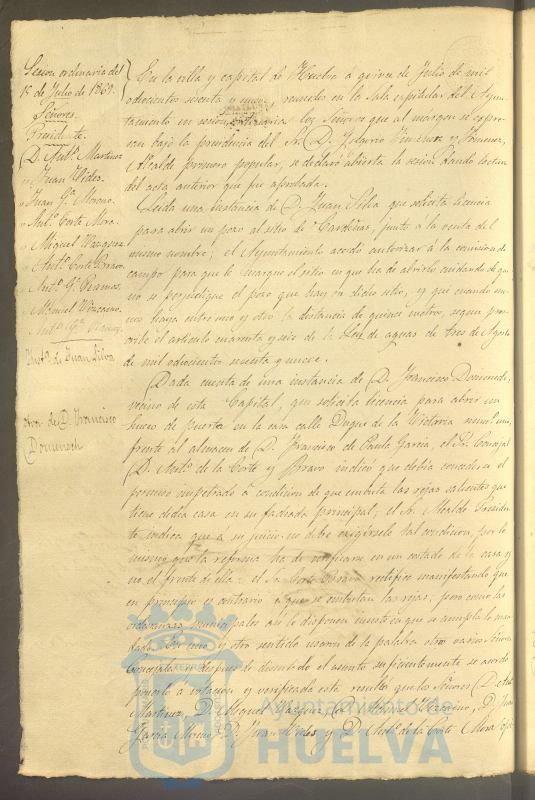 Sesion ordinaria del
15 de Julio de 1869.
Señores.
Presidente.
D. Antº. Martinez
" Juan Vides
" Juan Gª. Moreno.
" Antº. Corte Mora.
" Miguel Vazquez
" Antº. Corte Bravo
" Antº. Gª. Ramos.
" Manuel Vizcaino.
Instª. de Juan Silva
otra de D. Francisco
Domenech
En la villa y capital de Huelva á quince de Julio de mil
ochocientos sesenta y nueve, reunidos en la Sala capitular del Ayun-
tamiento en sesion ordinaria los Señores que al margen se espre-
san bajo la presidencia del Sr. D.
Alcalde primero popular, se declaró abierta la sesion dando lectura
del acta anterior que fue aprobada.
Leida una instancia de D. Juan Silva que solicita licencia
para abrir un pozo al sitio de Cardeñas, junto á la venta del
mismo nombre; el Ayuntamiento acordó autorizar á la comision de
campo para que le marque el sitio en que ha de abrirlo cuidando de que
no se perjudique el pozo que hay en dicho sitio, y que cuando me-
nos haya entre uno y otro la distancia de quince metros, segun pres-
cribe el articulo cuarenta y seis de la Ley de aguas de tres de Agosto
de mil ochocientos sesenta y nueve.
Dada cuenta de una instancia de D. Francisco Domenech,
vecino de esta Capital, que solicita licencia para abrir un
hueco de puerta en la casa calle Duque de la Victoria numº. uno,
frente al almacen de D. Francisco de Paula Garcia, el Sr. Concejal
D. Antº. de la Corte y Bravo indicó que debia concederse el
permiso impetrado á condicion de que embuta las rejas salientes que
tiene dicha casa en su fachada principal, el Sr. Alcalde Presiden-
te indica que á su juicio no debe exigirsele tal condicion, por lo
mismo que la reforma ha de verificarse en un costado de la casa y
no el frente de ella: el Sr. Corte Bravo rectificó manifestando que
en principio es contrario á que se embutan las rejas; pero como las
ordenanzas municipales asi lo disponen insiste en que se cumpla lo man-
dado. En uno y otro sentido usaron de la palabra otros varios Señores
Concejales y despues de discutido el asunto suficientemente se acordó
ponerlo á votacion y verificada esta resultó que los Señores D. Antº.
Martinez, D. Miguel Vazquez, D. Manuel Vizcaino, D. Juan
Garcia Moreno, D. Juan Vides y D. Antº. de la Corte Mora
Ayuntamiento de
HUELVA